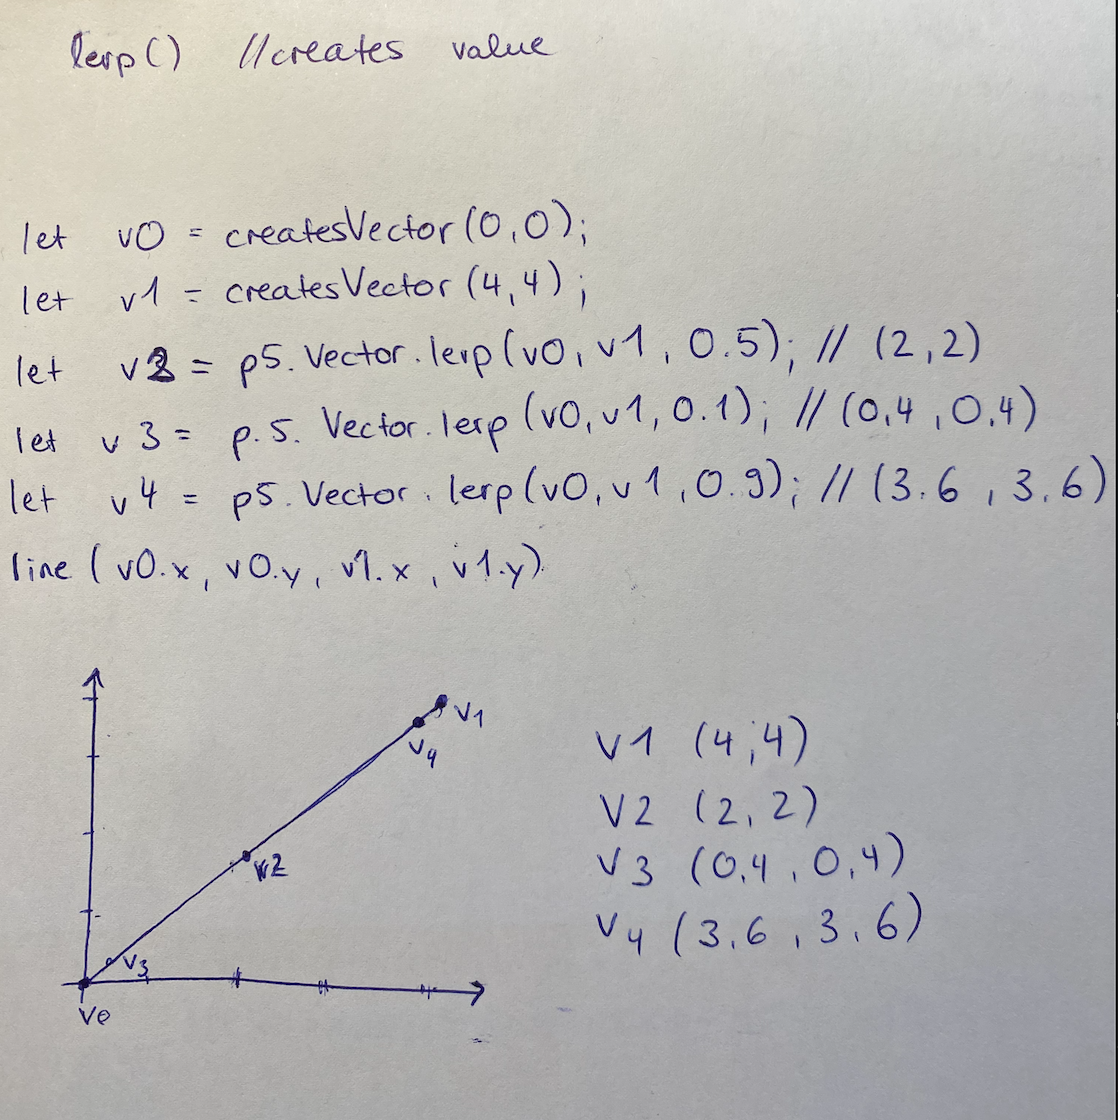 lerp() //creates value
let v0 = createsVector(0,0);
let v1 = createsVector(4,4);
let v2 = p5.Vector.lerp(v0,v1,0.5); // (2,2)
let v3 = p.5.Vector.lerp(v0,v1,0.1); // (0,4,0,4)
let v4 = p5.Vector.lerp(v0,v1,0.9); // (3.6,3.6)
line (v0.x, v0.y, v1.x, v1.y)
v1
v4
v2
v3
v0
v1 (4,4)
v2 (2,2)
v3 (0,4,0,4)
v4 (3.6,3.6)